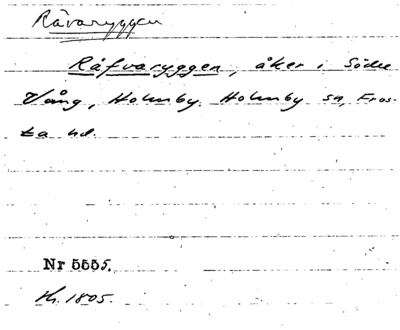 Råvaryggen
Råfvaryggen, åker i Södre
Vång, Holmby. Holmby sn, Fros-
ta hd.
Nr 5555.
Kr. 1805.